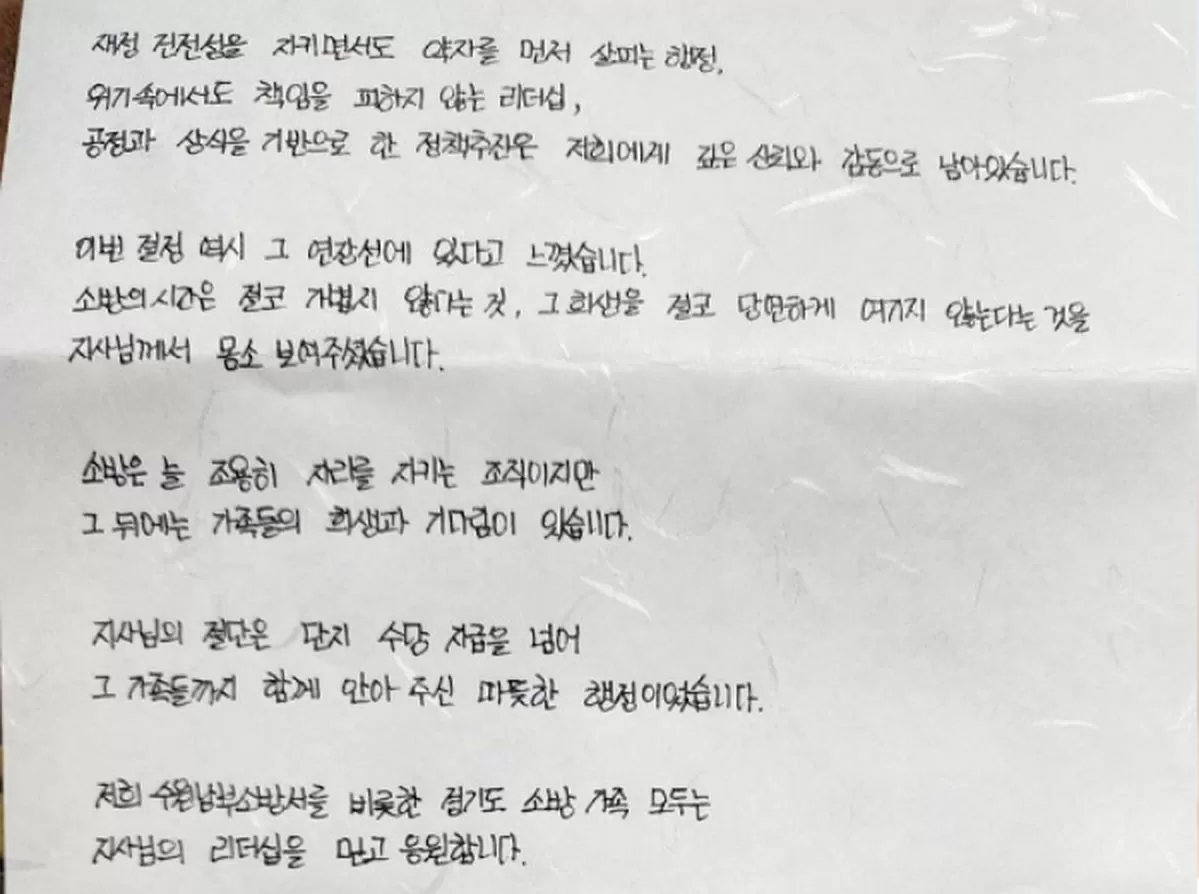 재정 건전성을 지키면서도 약자를 먼저 살피는 행정,
위기속에서도 책임을 피하지 않는 리더십,
공정과 상식을 기반으로 한 정책추진은 저희에게 깊은 신뢰와 감동으로 남아있습니다.
이번 결정 역시 그 연장선에 있다고 느꼈습니다.
소방의 시간은 결코 가볍지 않다는 것, 그 희생을 결코 당연하게 여기지 않는다는 것을
지사님께서 몸소 보여주셨습니다.
소방은 늘 조용히 자리를 지키는 조직이지만
그 뒤에는 가족들의 희생과 기다림이 있습니다.
지사님의 결단은 단지 수당 지급을 넘어
그 가족들까지 함께 안아 주신 따뜻한 행정이었습니다.
저희 수원남부소방서를 비롯한 경기도 소방 가족 모두는
지사님의 리더십을 믿고 응원합니다.